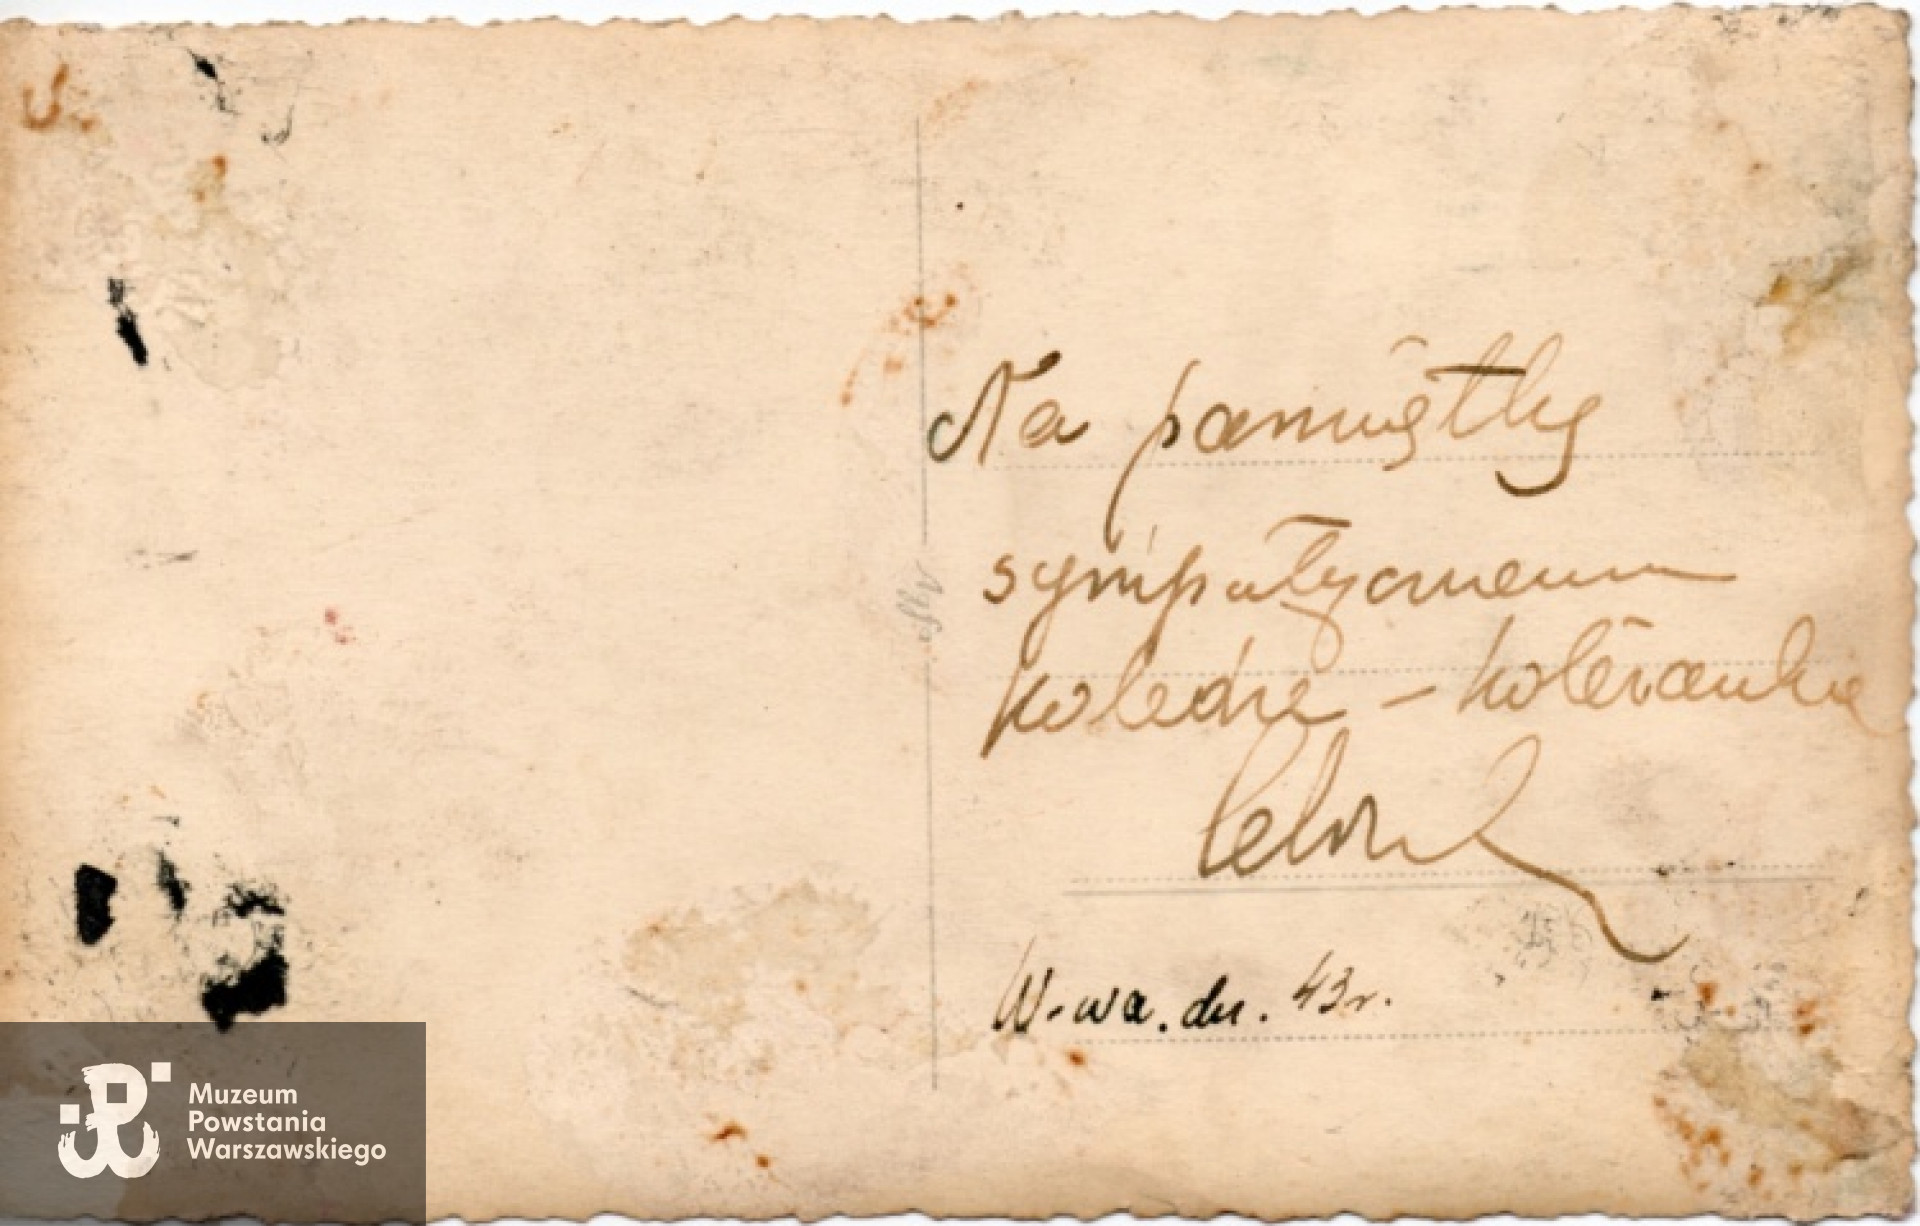 Na pamiątkę
sympatycznemu
koledze – koleżanka
W-wa. dn. 43r.
Muzeum
Powstania
Warszawskiego